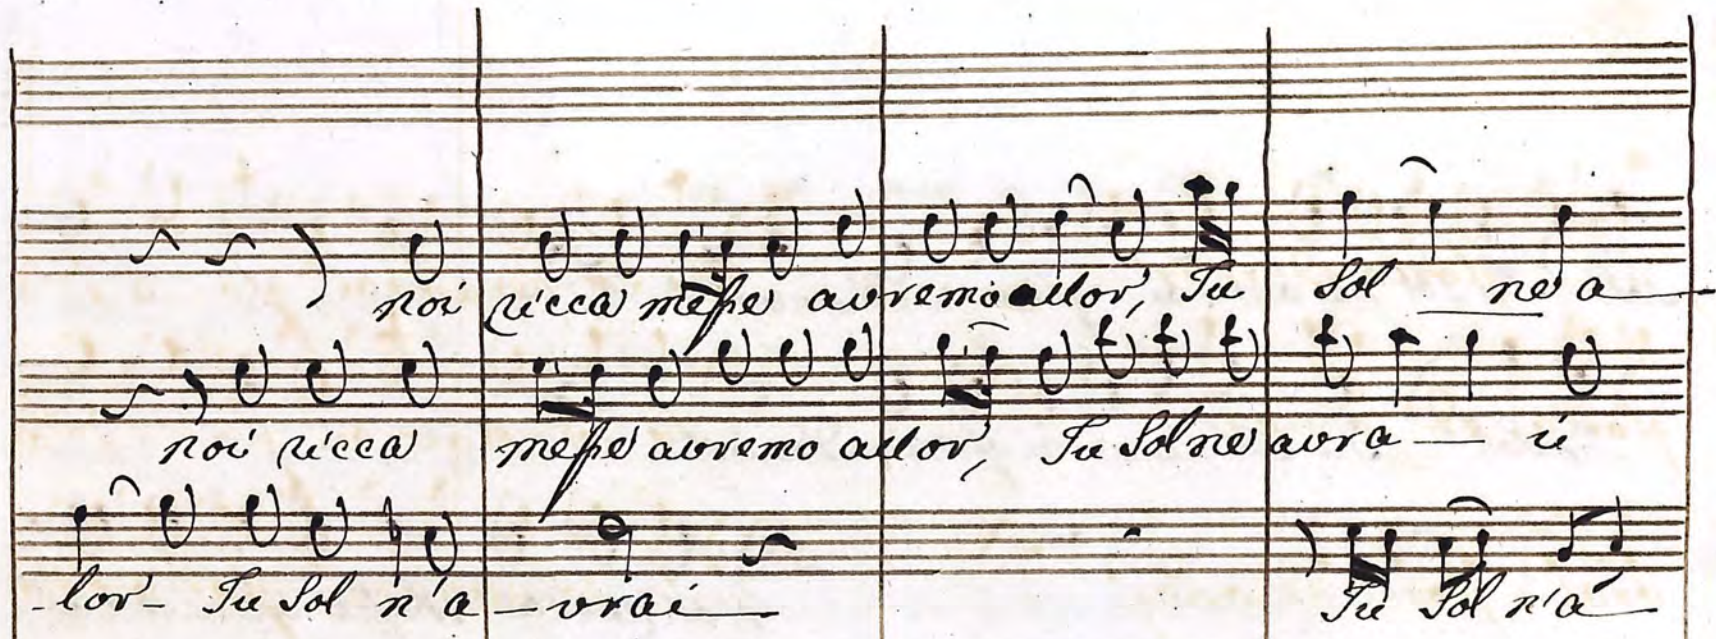 noi ricca messe avremo allor, Tu Sol ne a—
noi ricca messe avremo allor, Tu Sol ne avra — i
-lor- Tu Sol n'a — vrai — Tu Sol n'a —